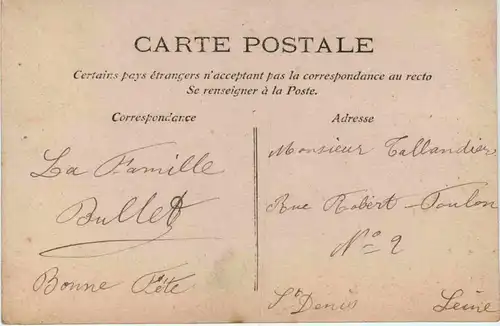 CARTE POSTALE
Certains pays étrangers n'acceptant pas la correspondance au recto
Se renseigner à la Poste.
Correspondance
Adresse
La Famille
Bullet
Bonne Fête
Monsieur Tallandier
Rue Robert-Foulon
No 2
St Denis Seine